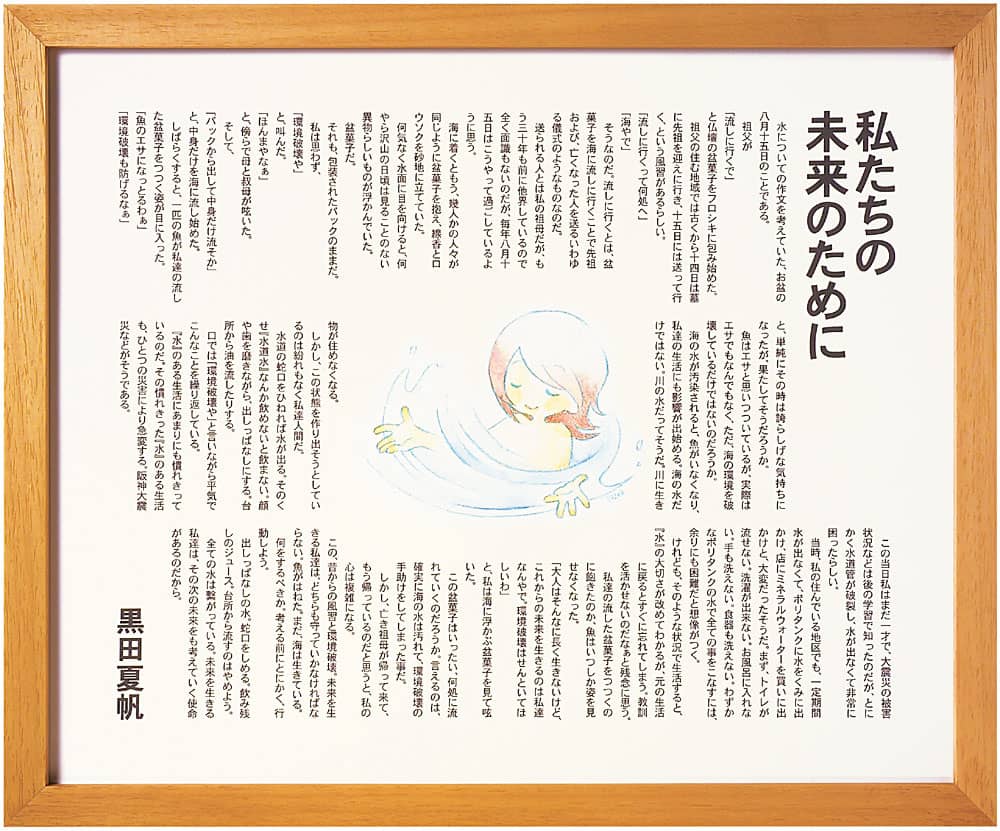 私たちの
未来のために
水についての作文を考えていた、お盆の
八月十五日のことである。
祖父が
「流しに行くで」
と仏壇の盆菓子をフロシキに包み始めた。
祖父の住む地域では古くから十四日は墓
に先祖を迎えに行き、十五日には送って行
く、という風習があるらしい。
「流しに行くって何処へ」
「海やで」
そうなのだ。流しに行くとは、盆
菓子を海に流しに行くことで先祖
および、亡くなった人を送るいわゆ
る儀式のようなものなのだ。
送られる人とは私の祖母だが、も
う三十年も前に他界しているので
全く面識もないのだが、毎年八月十
五日はこうやって過ごしているよ
うに思う。
海に着くともう、幾人かの人々が
同じように盆菓子を抱え、線香とロ
ウソクを砂地に立てていた。
何気なく水面に目を向けると、何
やら沢山の日頃は見ることのない
異物らしいものが浮かんでいた。
盆菓子だ。
それも、包装されたパックのままだ。
私は思わず、
「環境破壊や」
と、叫んだ。
「ほんまやなぁ」
と、傍らで母と叔母が呟いた。
そして、
「パックから出して中身だけ流そか」
と、中身だけを海に流し始めた。
しばらくすると、一匹の魚が私達の流し
た盆菓子をつつく姿が目に入った。
「魚のエサになっとるわぁ」
「環境破壊も防げるなぁ」
と、単純にその時は誇らしげな気持ちに
なったが、果たしてそうだろうか。
魚はエサと思いつついているが、実際は
エサでもなんでもなく、ただ、海の環境を破
壊しているだけではないのだろうか。
海の水が汚染されると、魚がいなくなり、
私達の生活にも影響が出始める。海の水だ
けではない。川の水だってそうだ。川に生き
物が住めなくなる。
しかし、この状態を作り出そうとしてい
るのは紛れもなく私達人間だ。
水道の蛇口をひねれば水が出る。そのく
せ『水道水』なんか飲めないと飲まない。顔
や歯を磨きながら、出しっぱなしにする。台
所から油を流したりする。
口では『環境破壊や』と言いながら平気で
こんなことを繰り返している。
『水』のある生活にあまりにも慣れきって
いるのだ。その慣れきった『水』のある生活
も、ひとつの災害により急変する。阪神大震
災などがそうである。
この当日私はまだ一才で、大震災の被害
状況などは後の学習で知ったのだが、とに
かく水道管が破裂し、水が出なくて非常に
困ったらしい。
当時、私の住んでいる地区でも、一定期間
水が出なくて、ポリタンクに水をくみに出
かけ、店にミネラルウォーターを買いに出
かけと、大変だったそうだ。まず、トイレが
流せない。洗濯が出来ない。お風呂に入れな
い。手も洗えない。食器も洗えない。わずか
なポリタンクの水で全ての事をこなすには、
余りにも困難だと想像がつく。
けれども、そのような状況で生活すると、
『水』の大切さが改めてわかるが、元の生活
に戻るとすぐに忘れてしまう。教訓
を活かせないのだなぁと残念に思う。
私達の流した盆菓子をつつくの
に飽きたのか、魚はいつしか姿を見
せなくなった。
「大人はそんなに長く生きないけど、
これからの未来を生きるのは私達
なんやで。環境破壊はせんといては
しいわ」
と、私は海に浮かぶ盆菓子を見て呟
いた。
この盆菓子はいったい、何処に流
れていくのだろうか。言えるのは、
確実に海の水は汚れて、環境破壊の
手助けをしてしまった事だ。
しかし、亡き祖母が帰って来て、
もう帰っているのだと思うと、私の
心は複雑になる。
この、昔からの風習と環境破壊。未来を生
きる私達は、どちらも守っていかなければな
らない。魚がはねた。まだ、海は生きている。
何をするべきか。考える前にとにかく、行
動しよう。
出しっぱなしの水。蛇口をしめる。飲み残
しのジュース。台所から流すのはやめよう。
全ての水は繋がっている。未来を生きる
私達は、その次の未来をも考えていく使命
があるのだから。
黒田夏帆